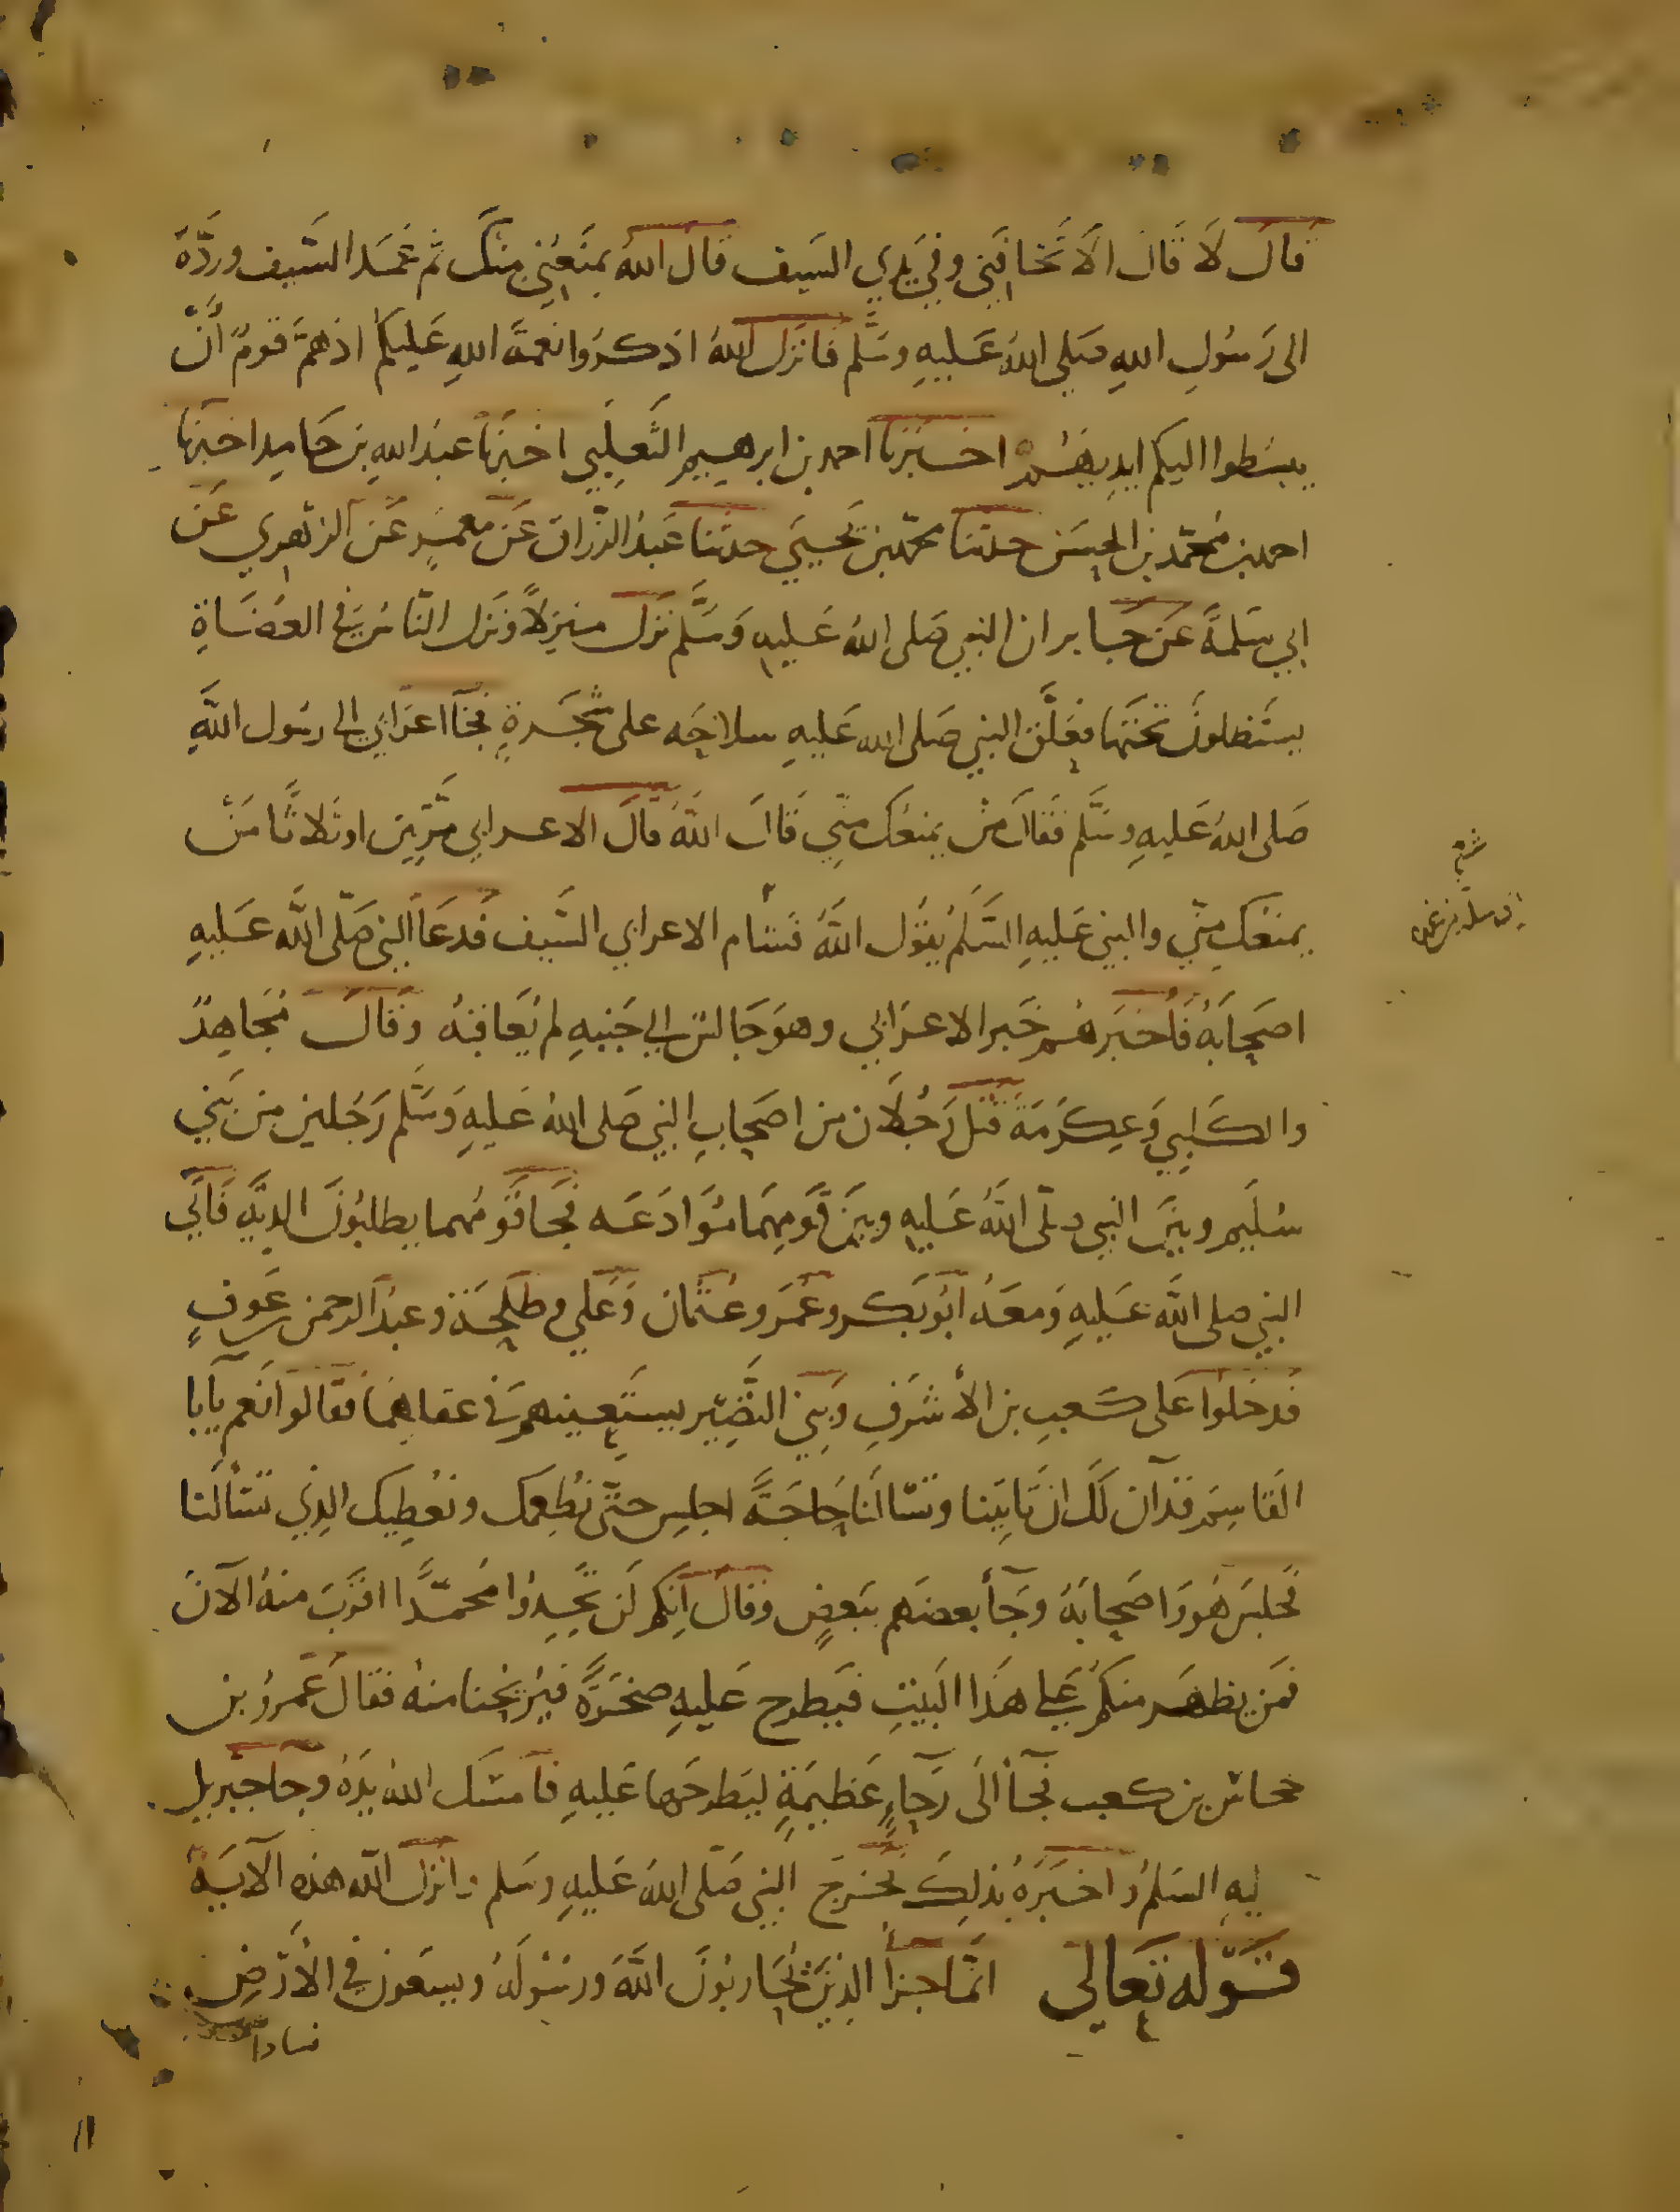 قال لا قال الا تخافني وفي يدي السيف قال الله يمنعني منك ثم غمد السيف وردّه
الى رسول الله صلى الله عليه وسلم فانزل الله اذكروا نعمة الله عليكم اذ هم قوم أن
يبسطوا اليكم ايديهم اخبرنا احمد بن ابرهيم الثعلبي اخبرنا عبد الله بن حامد اخبرنا
احمد بن محمد بن الحسن حدثنا محمد بن يحيى حدثنا عبد الرزاق عن معمر عن الزهري عن
ابي سلمة عن جابر ان النبي صلى الله عليه وسلم نزل منزلاً ونزل الناس في العضاة
يستظلون تحتها فعلّق النبي صلى الله عليه سلاحه على شجرة فجآ اعرابي الى رسول الله
صلى الله عليه وسلم فقال من يمنعك مني قال الله قال الاعرابي مرتين او ثلاثا من
يمنعك مني والنبي عليه السلم يقول الله فشام الاعرابي السيف فدعا النبي صلى الله عليه
اصحابه فاخبرهم خبر الاعرابي وهو جالس الى جنبه لم يعاقبه وقال مجاهد
والكلبي وعكرمة قتل رجلان من اصحاب النبي صلى الله عليه وسلم رجلين من بني
سليم وبين النبي صلى الله عليه وبين قومهما موادعه فجا قومهما يطلبون الدية فاتى
النبي صلى الله عليه ومعه ابو بكر وعمر وعثمان وعلي وطلحة وعبد الرحمن عوف
فدخلوا على كعب بن الأشرف وبني النضير يستعينهم في عقلهما فقالوا نعم يآبا
القاسم قد آن لك ان تاتينا وتسالنا حاجة اجلس حتى نطعمك ونعطيك الذي تسألنا
فجلس هو واصحابه وجآ بعضهم ببعض وقال انكم لن تجدوا محمدا اقرب منه الآن
فمن يظهر منكم على هذا البيت فيطرح عليه صخرة فيريحنا منه فقال عمرو بن
جحاش بن كعب فجآ الى رحآء عظيمة ليطرحها عليه فامسك الله يده وجآ جبريل
ليه السلم واخبره بذلك فخرج النبي صلى الله عليه وسلم وانزل الله هذه الآية
قوله تعالى انما جزآ الذين يحاربون الله ورسوله ويسعون في الأرض
فسادا
١١